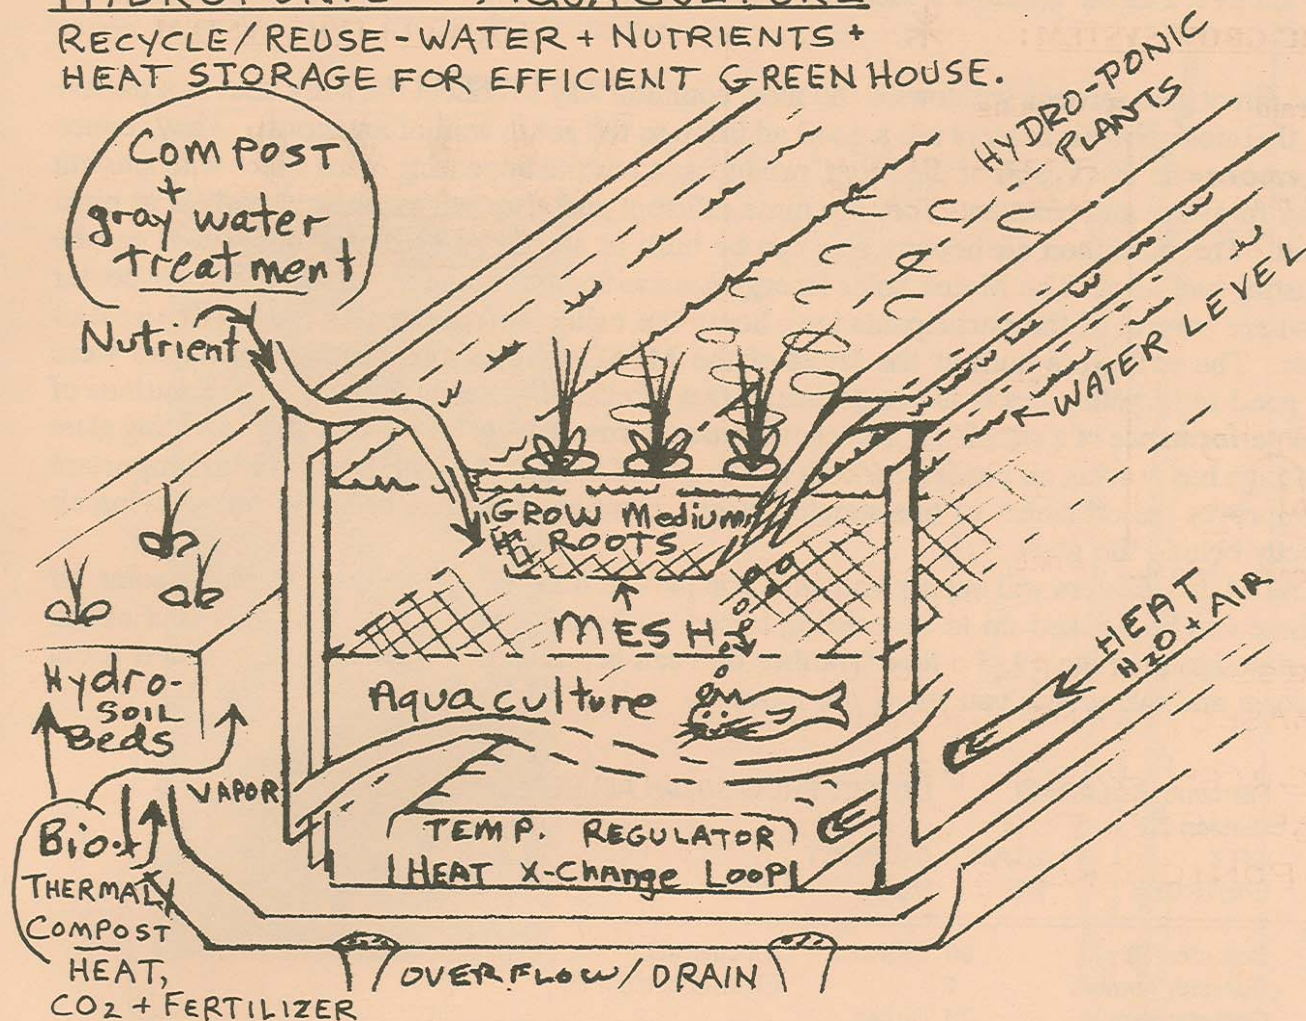 HYDROPONIC AQUACULTURE
RECYCLE/REUSE - WATER + NUTRIENTS +
HEAT STORAGE FOR EFFICIENT GREEN HOUSE.
COMPOST
+
gray water
treatment
Nutrient
HYDRO-PONIC
PLANTS
WATER LEVEL
GROW Medium
ROOTS
MESH
HEAT
H2O + AIR
Aquaculture
Hydro-
SOIL
Beds
VAPOR
TEMP. REGULATOR
HEAT X-Change LOOP
Bio +
THERMAL
COMPOST
HEAT,
CO2 + FERTILIZER
OVERFLOW/DRAIN